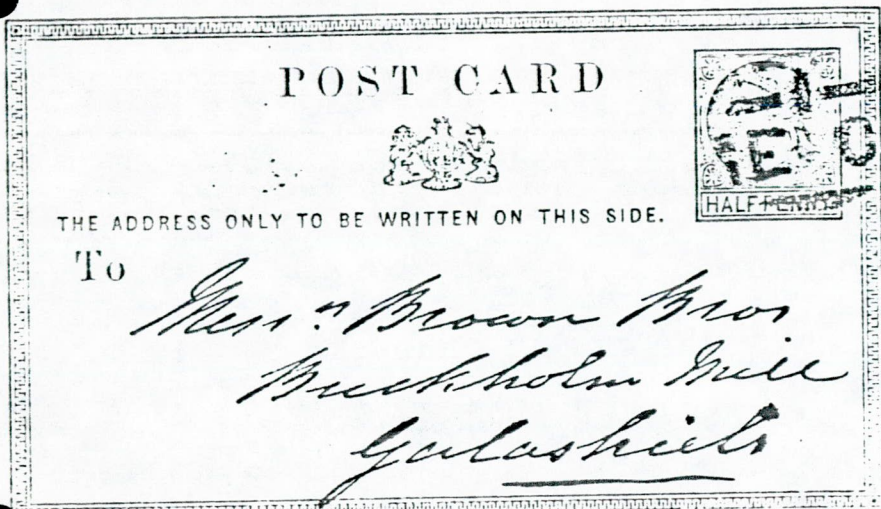 POST CARD
THE ADDRESS ONLY TO BE WRITTEN ON THIS SIDE.
HALFPENNY
To
Messrs Brown Bros
Buckholm Mill
Galashiels